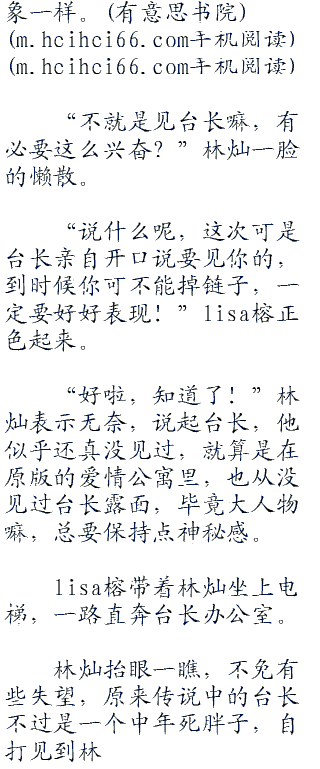 象一样。(有意思书院)
(m.hcihci66.com手机阅读)
(m.hcihci66.com手机阅读)
“不就是见台长嘛，有
必要这么兴奋？”林灿一脸
的懒散。
“说什么呢，这次可是
台长亲自开口说要见你的，
到时候你可不能掉链子，一
定要好好表现！”lisa榕正
色起来。
“好啦，知道了！”林
灿表示无奈，说起台长，他
似乎还真没见过，就算是在
原版的爱情公寓里，也从没
见过台长露面，毕竟大人物
嘛，总要保持点神秘感。
lisa榕带着林灿坐上电
梯，一路直奔台长办公室。
林灿抬眼一瞧，不免有
些失望，原来传说中的台长
不过是一个中年死胖子，自
打见到林